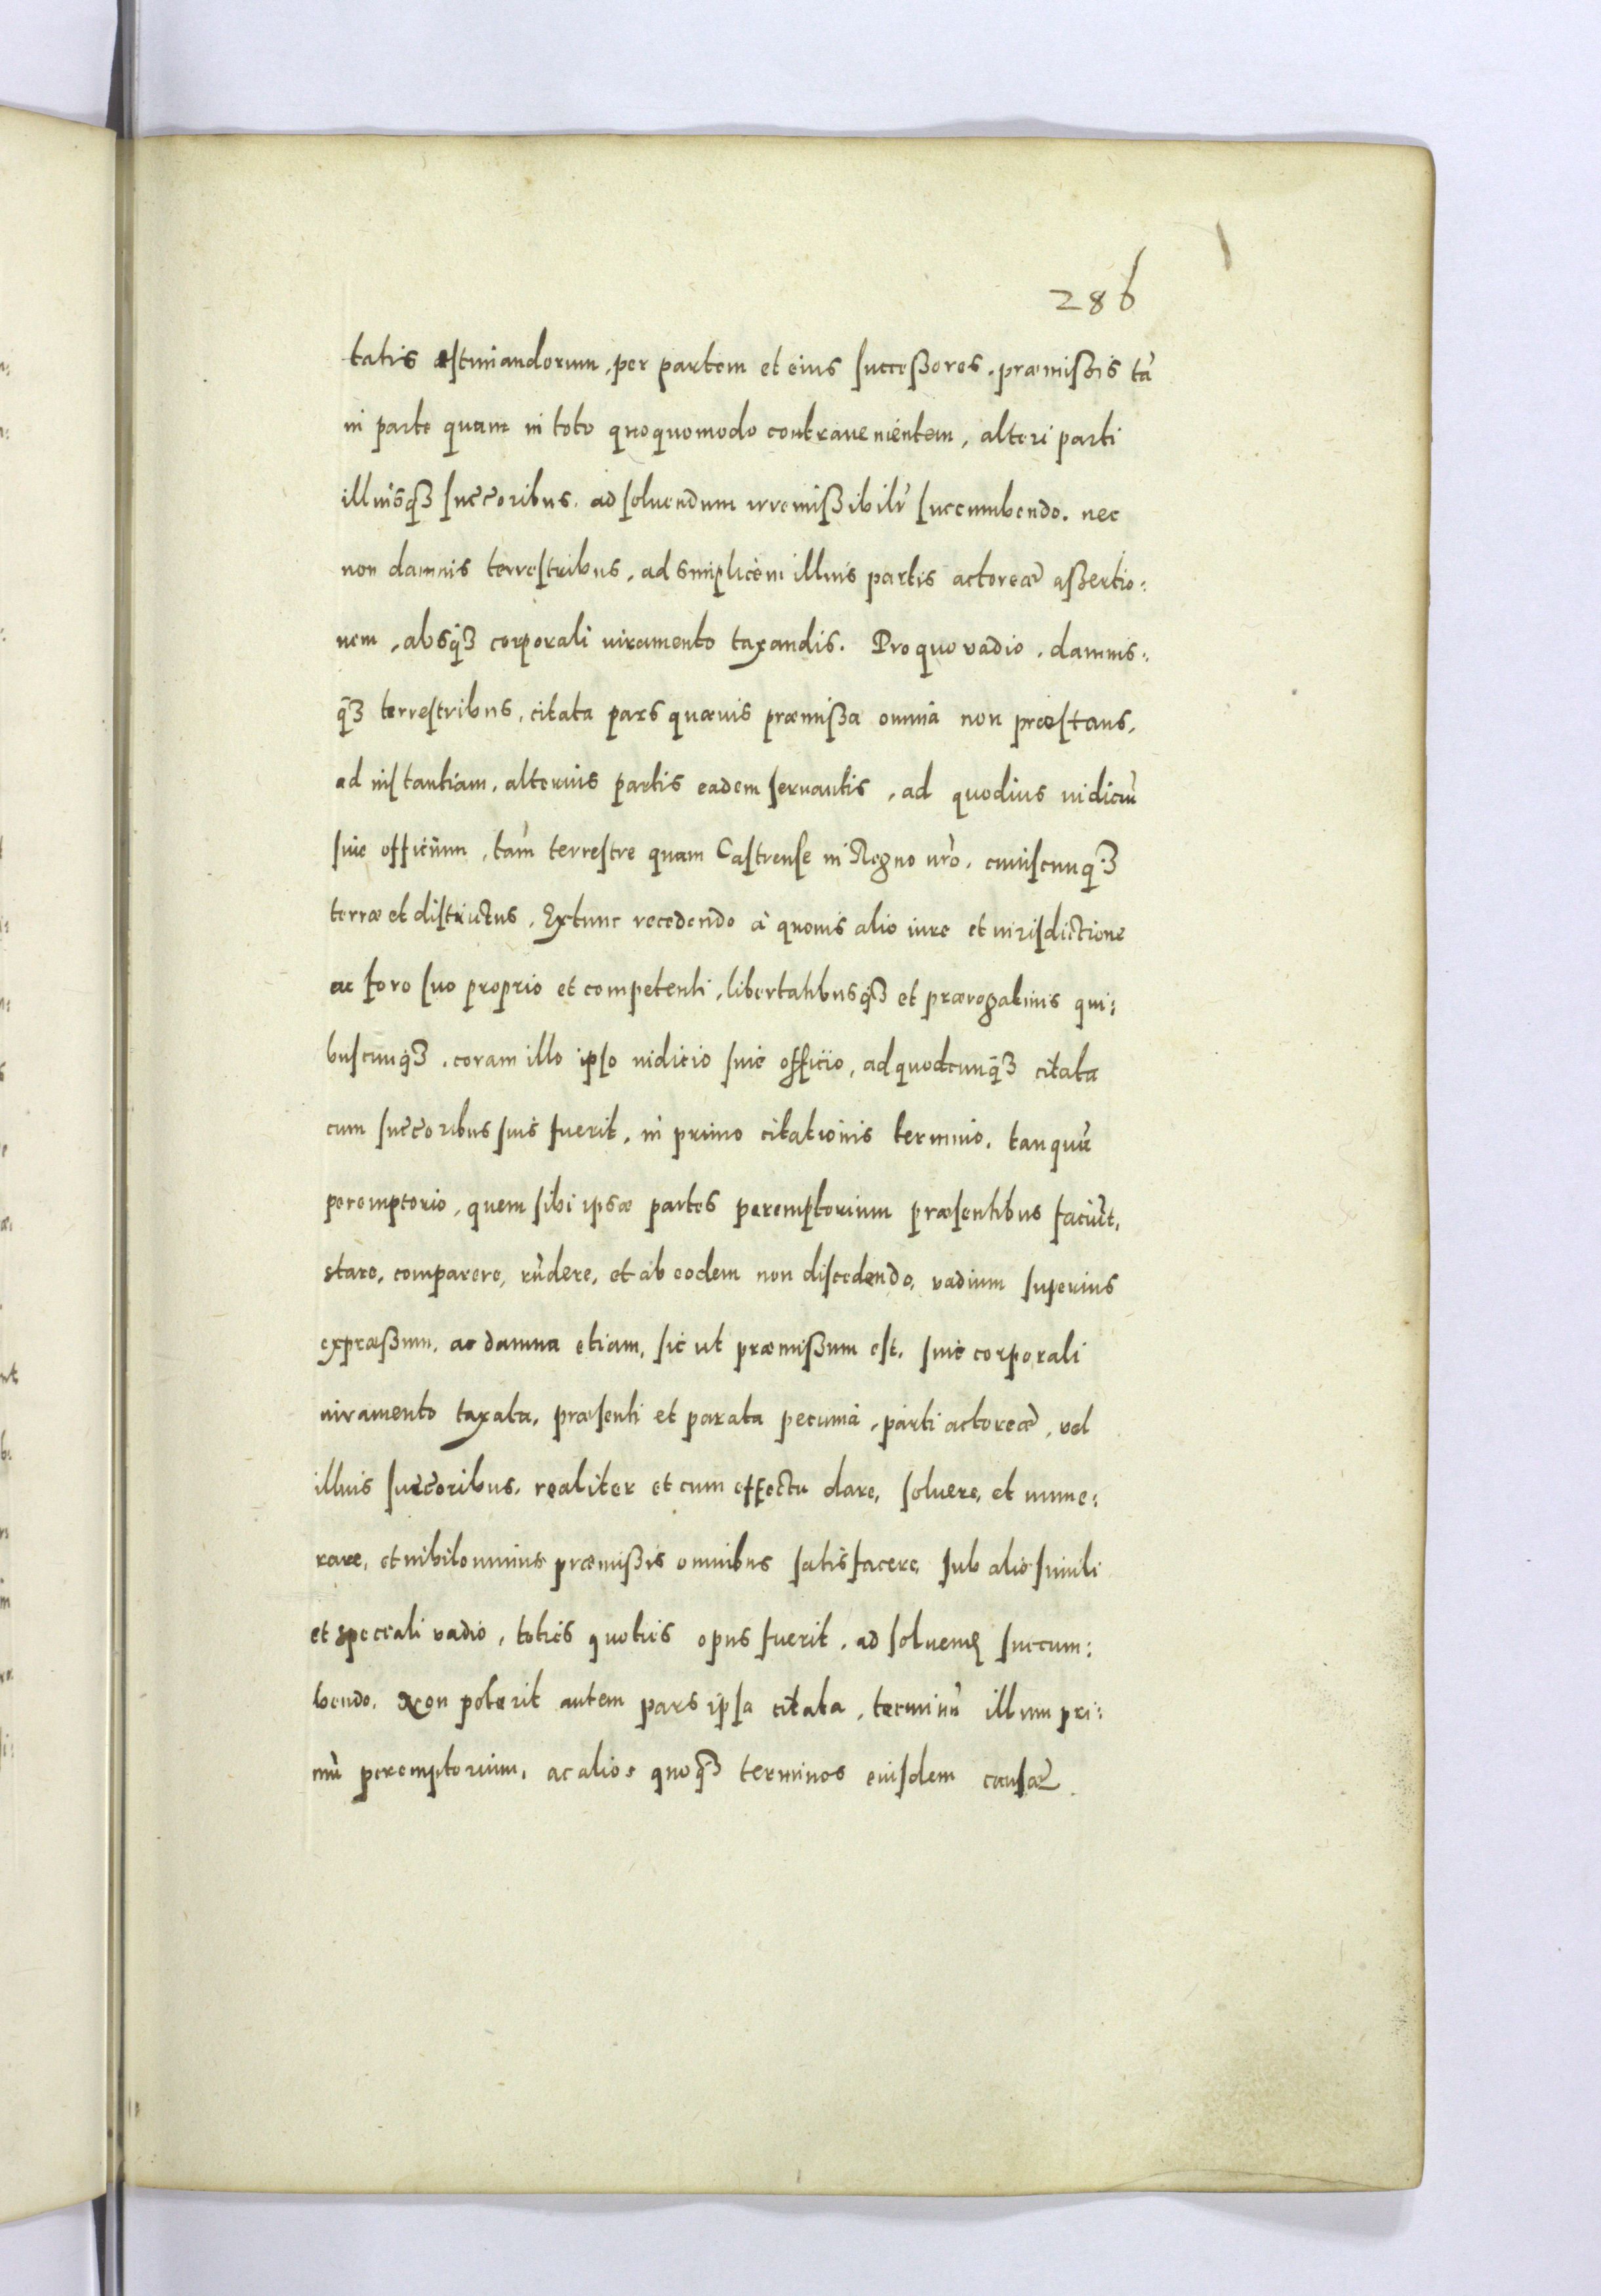 286
tatis æstimandorum, per partem et eius successores, præmissis tā
in parte quam in toto quoquomodo contravenientem, alteri parti
illiusq₃ succoribus, ad soluendum irremissibilr succumbendo. nec
non damnis terrestribus, ad simplicem illius partis actoreæ assertio:
nem, absq₃ corporali iuramento taxandis. Pro quo vadio, damnis:
q₃ terrestribus, citata pars quævis præmissa omnia non præstans,
ad instantiam, alterius partis eadem seruantis, ad quoduis iudiciū
siue officium, tam terrestre quam Castrense in Regno nrō, cuiuscunq₃
terræ et districtus. Extunc recedendo à quouis alio iure et iurisdictione
ac foro suo proprio et competenti, libertatibusq₃ et prærogatiuis qui:
buscunq₃, coram illo ipso iudicio siue officio, ad quodcunq₃ citata
cum succoribus suis fuerit, in primo citationis termino, tanquā
peremptorio, quem sibi ipsæ partes peremptorium præsentibus faciūt,
stare, comparere, rūdere, et ab eodem non discedendo, vadium superius
expræssum, ac damna etiam, sic ut præmissum est, siue corporali
iuramento taxata, præsenti et parata pecunia, parti actoreæ, vel
illius succoribus, realiter et cum effectu dare, soluere, et nume:
rare, et nihilominus præmissis omnibus satisfacere, sub alio simili
et speciali vadio, toties quoties opus fuerit, ad soluenꝭ succum:
bendo. Non poterit autem pars ipsa citata, terminū illum pri:
mū peremptorium, ac alios quoq₃ terminos euisdem causæ